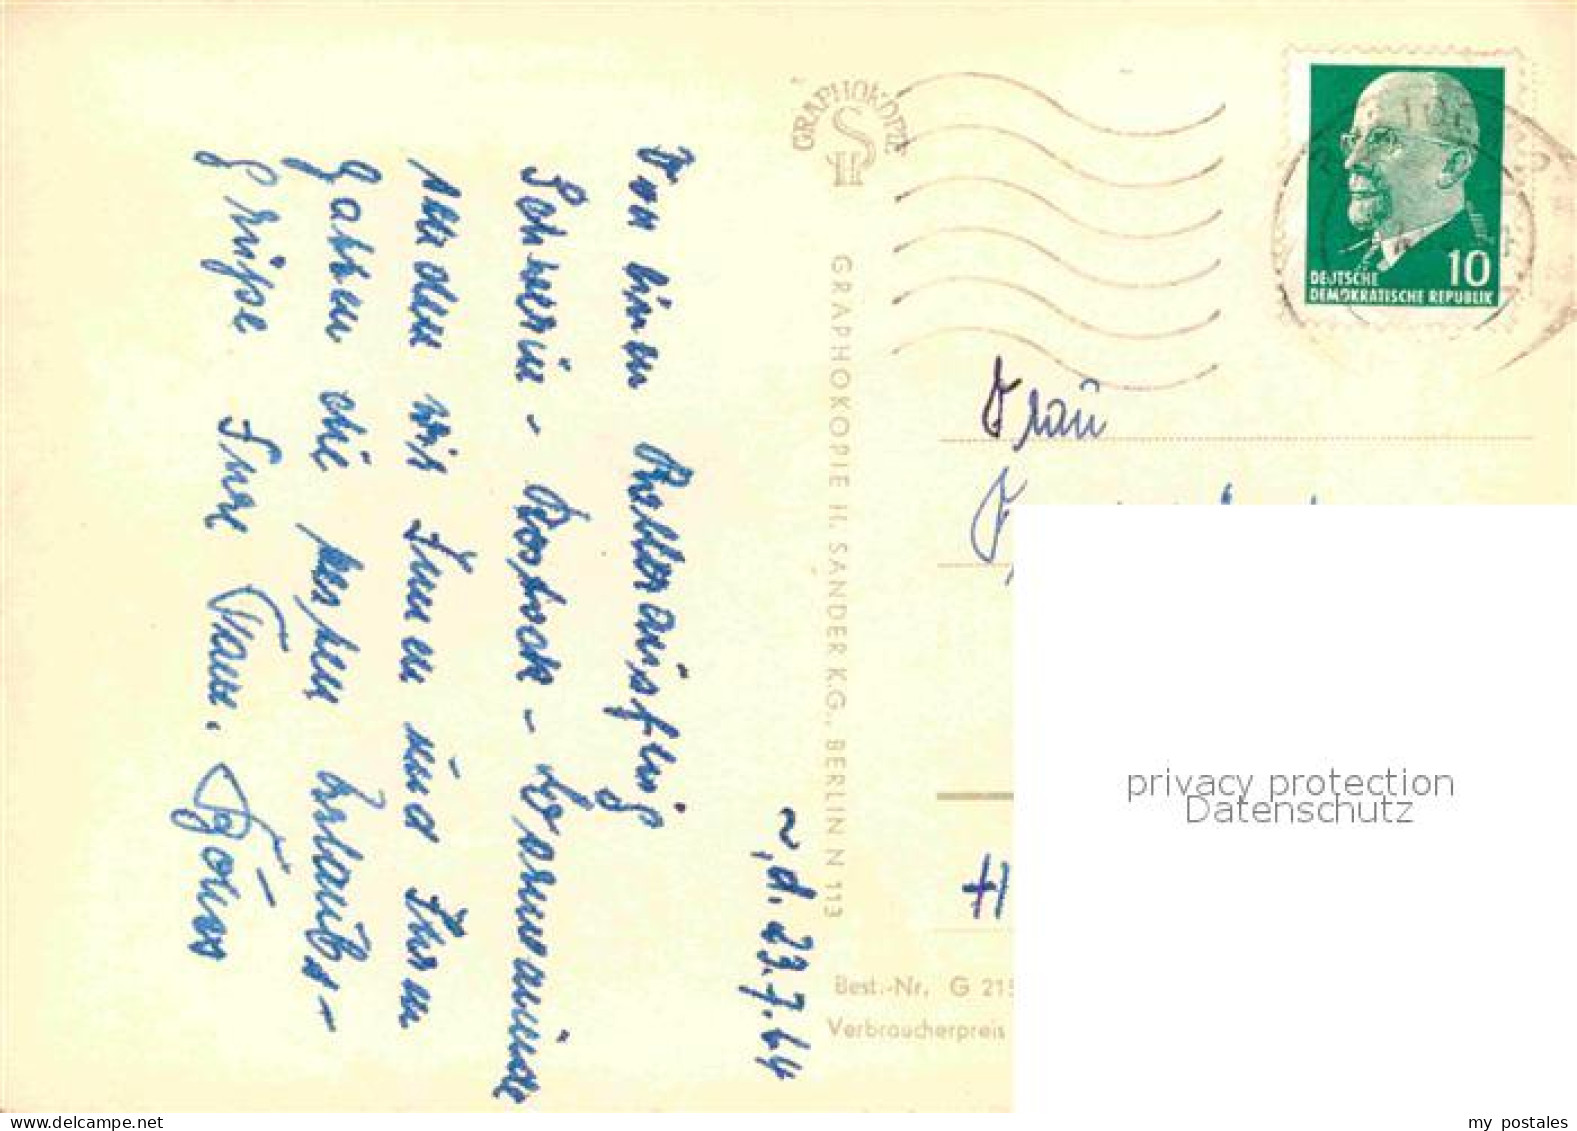 ~, d. 23.7.64
Von einem
Schwerin - Rostock - Warnemünde
senden wir Ihnen und Ihrem
Gatten die besten Urlaubs-
Grüße Eure Fam.
GRAPHOKOPIE
H S
GRAPHOKOPIE H. SANDER K.G., BERLIN N 113
DEUTSCHE
DEMOKRATISCHE REPUBLIK
10
Frau
H
Best.-Nr. G 215
Verbraucherpreis
privacy protection
Datenschutz
www.delcampe.net
my_postales